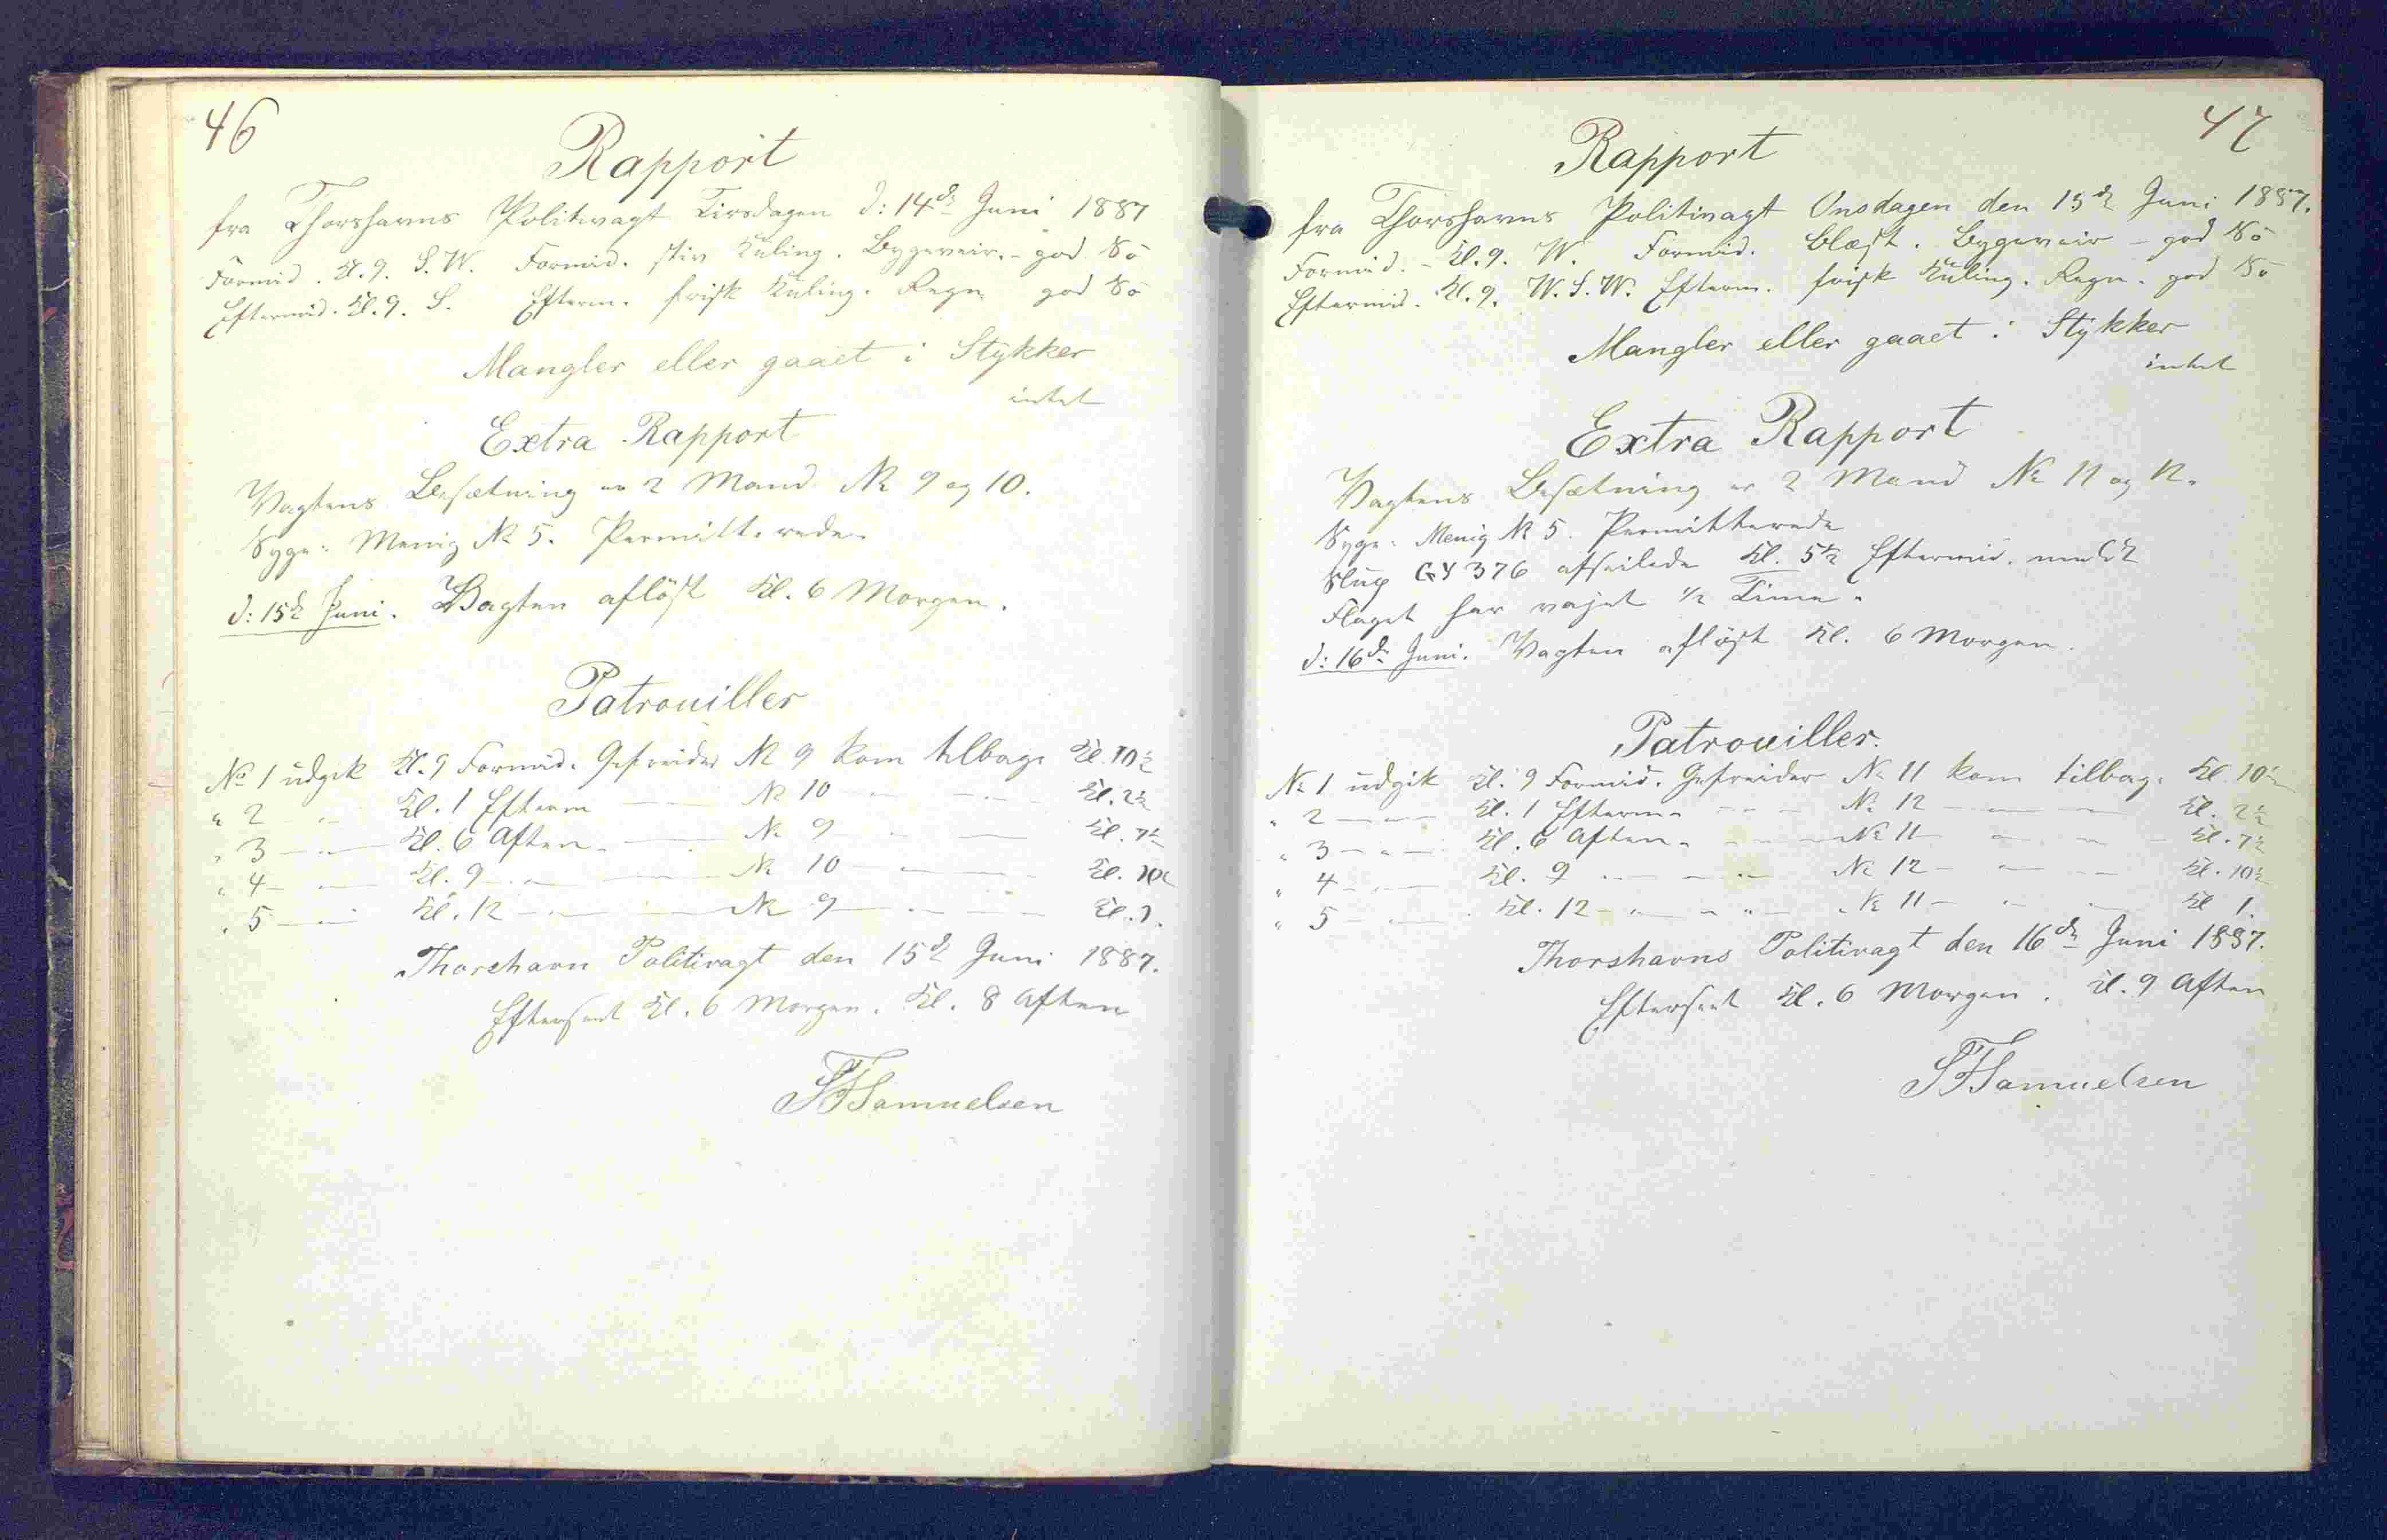 46
Rapport
fra Thorshavns Politivagt Tirsdagen d: 14de Juni 1887
Formid. Kl. 9. S.W. Formid. stiv Kuling. Bygeveir. - god Sö
Eftermid. Kl. 9. S. Efterm. frisk Kuling. Regn god Sö
Mangler eller gaaet i Stykker
intet
Extra Rapport
Vagtens Besætning er 2 Mand № 9 og 10.
Syge: Menig № 5. Permitterede
d: 15de Juni. Vagten aflöst Kl. 6 Morgen.
Patrouiller
№ 1 udgik Kl. 9 Formid. Gefreider № 9 kom tilbage Kl. 10½
" 2 — " — Kl. 1 Efterm — № 10 — " — Kl. 2½
" 3 — " — Kl. 6 Aften — " — № 9 — " — Kl. 7½
" 4 — " — Kl. 9 — " — № 10 — " — Kl. 10½
" 5 — " — Kl. 12 — " — № 9 — " — Kl. 1.
Thorshavn Politivagt den 15de Juni 1887.
Efterseet Kl. 6 Morgen. Kl. 8 Aften
Samuelsen
47
Rapport
fra Thorshavns Politivagt Onsdagen den 15de Juni 1887.
Formid. - Kl. 9. W. Formid. blæst. Bygeveir - god Sö
Eftermid. Kl. 9. W.S.W. Efterm. frisk Kuling. Regn. god Sö
Mangler eller gaaet i Stykker
intet
Extra Rapport
Vagtens Besætning er 2 Mand № 11 og 12.
Syge: Menig № 5. Permitterede
Slup GY 376 afseilede Kl. 5½ Eftermid.
Flaget har vajet ½ Time.
d: 16de Juni. Vagten aflöst Kl. 6 Morgen.
Patrouiller.
№ 1 udgik Kl. 9 Formid. Gefreider № 11 kom tilbage Kl. 10½
" 2 — " — Kl. 1 Efterm. — " — № 12 — " — Kl. 2½
" 3 — " — Kl. 6 Aften. — " — № 11 — " — Kl. 7½
" 4 — " — Kl. 9 — " — № 12 — " — Kl. 10½
" 5 — " — Kl. 12 — " — № 11 — " — Kl 1.
Thorshavns Politivagt den 16de Juni 1887.
Efterseet Kl. 6 Morgen. Kl. 9 Aften
Samuelsen